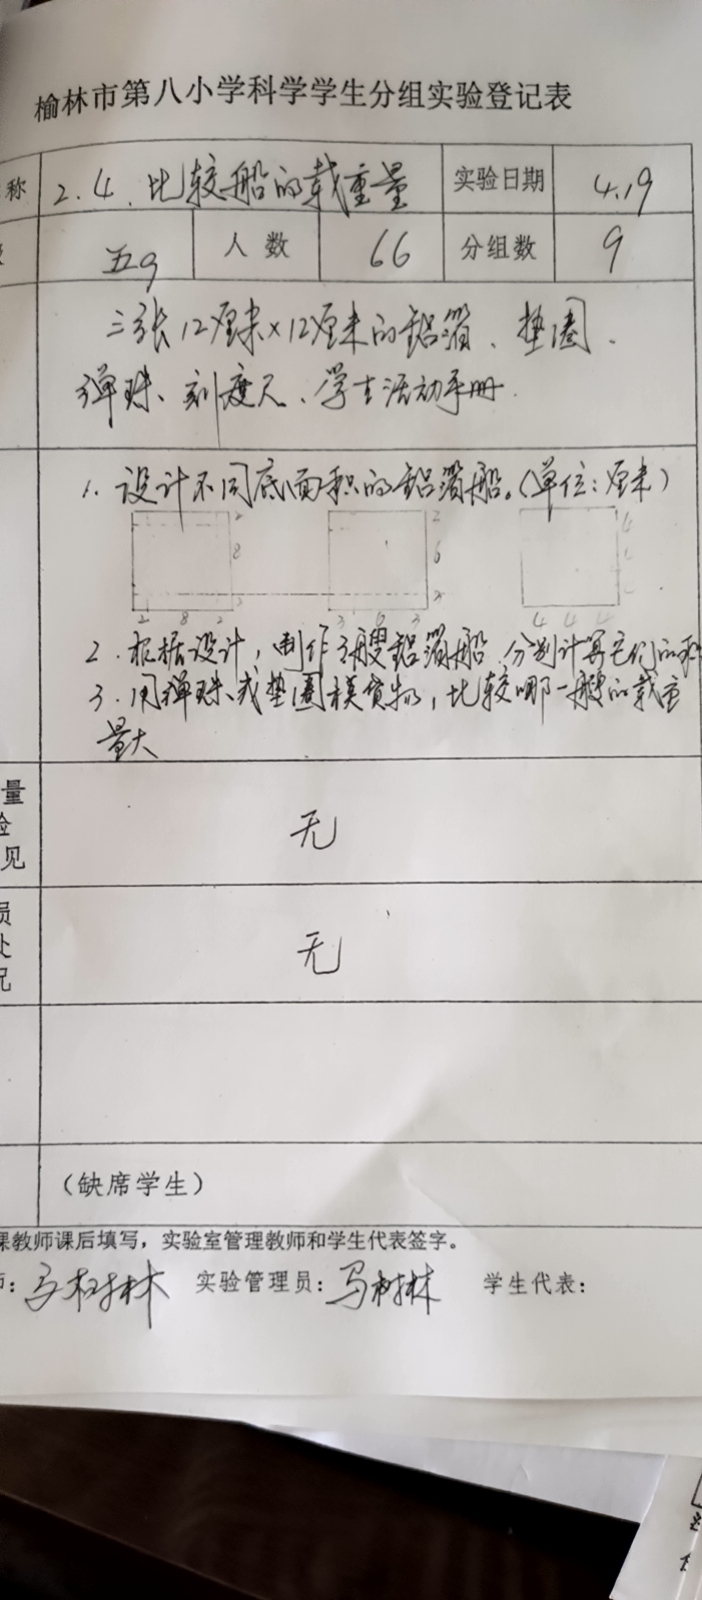 榆林市第八小学科学学生分组实验登记表
称 2.4.比较船的载重量 实验日期 4.19
五9 人数 66 分组数 9
三张12厘米×12厘米的铝箔、垫圈、
弹珠、刻度尺、学生活动手册.
1.设计不同底面积的铝箔船。(单位:厘米)
2 2 4
8 6 4
2 3 4
2 8 2 3 6 3 4 4 4
2.根据设计,制作3艘铝箔船,分别计算它们的
3.用弹珠、或垫圈模货物,比较哪一艘的载重
量大
量
验
见
无
员
处
况
无
(缺席学生)
课教师课后填写,实验室管理教师和学生代表签字。
师: 马树林 实验管理员: 马树林 学生代表: